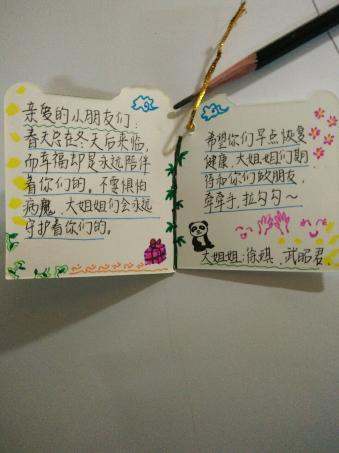 亲爱的小朋友们：
春天总在冬天后来临，
而幸福却是永远陪伴
着你们的。不要惧怕
病魔，大姐姐们会永远
守护着你们的。
希望你们早点恢复
健康，大姐姐们期
待和你们做朋友，
牵牵手，拉勾勾～
大姐姐：徐琪、武昭君